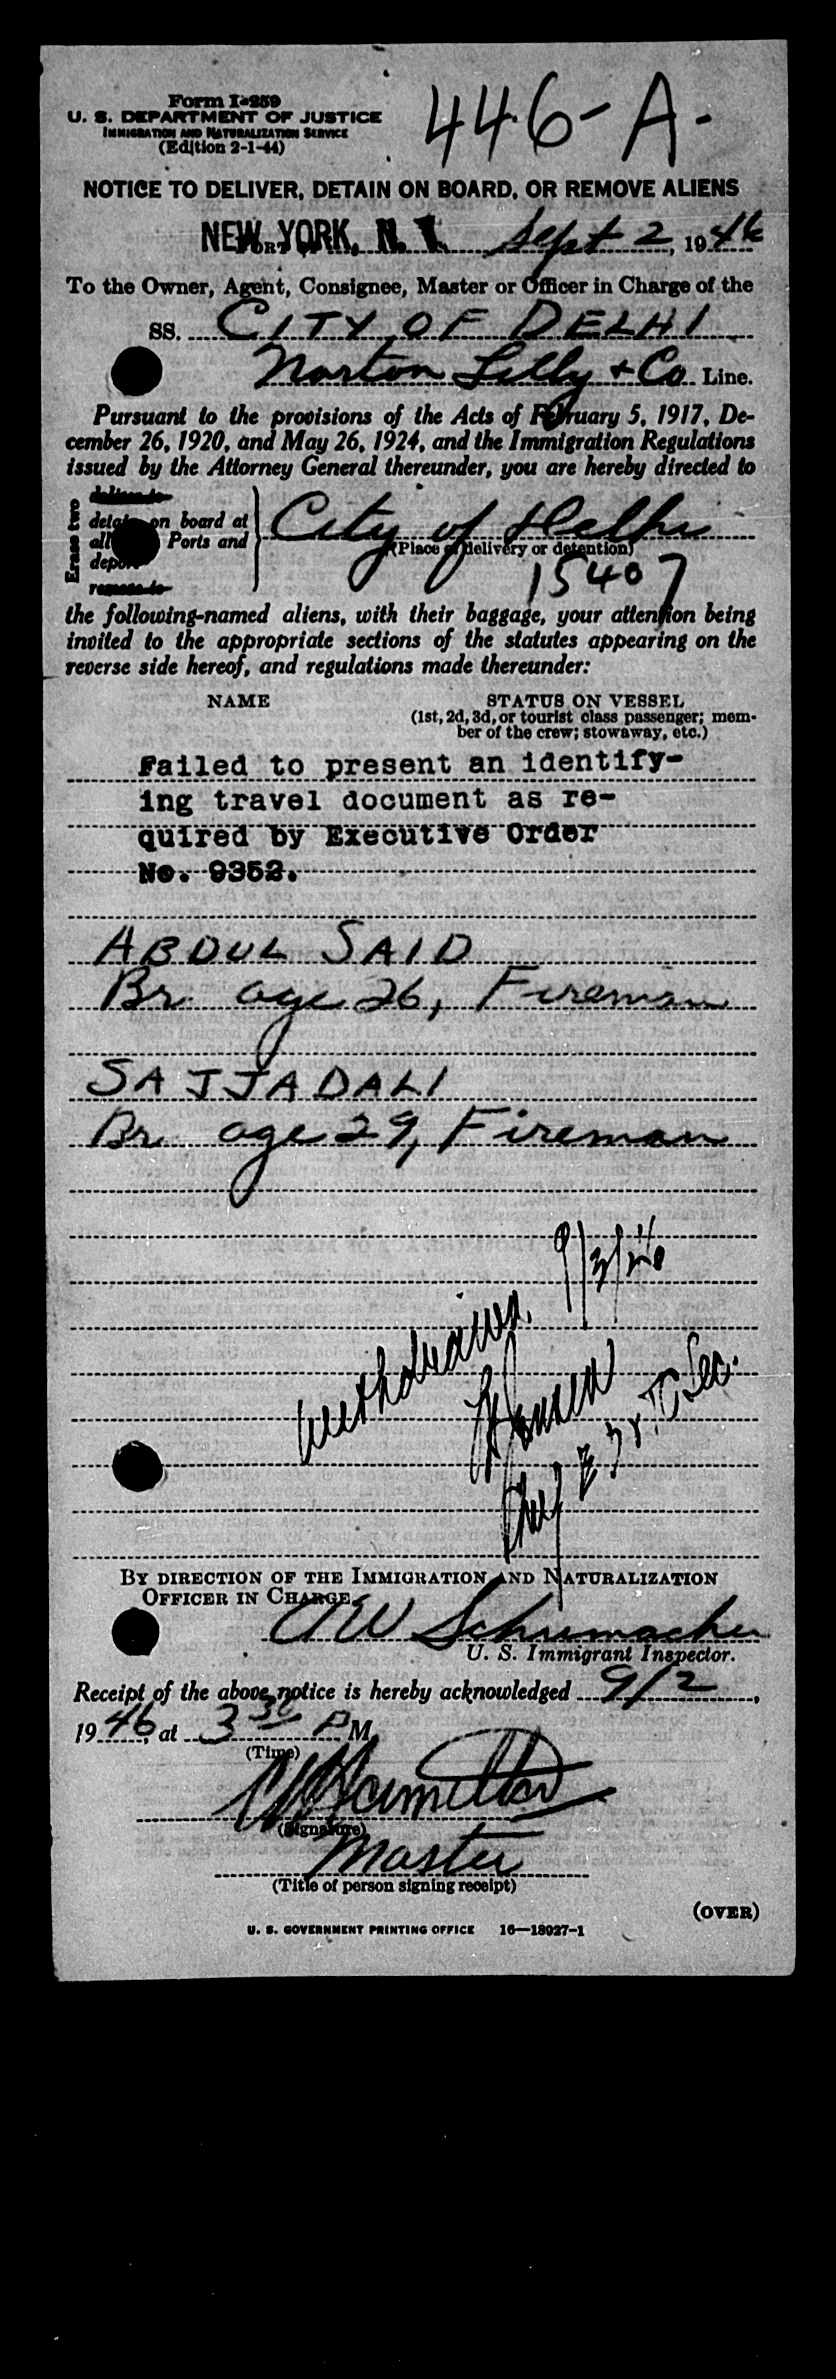 Form I-259
U. S. DEPARTMENT OF JUSTICE
IMMIGRATION AND NATURALIZATION SERVICE
(Edition 2-1-44)
446-A-
NOTICE TO DELIVER, DETAIN ON BOARD, OR REMOVE ALIENS
NEW YORK, N. Y. Sept 2, 1946
To the Owner, Agent, Consignee, Master or Officer in Charge of the
SS. CITY OF DELHI
Norton Lilly & Co Line.
Pursuant to the provisions of the Acts of February 5, 1917, De-
cember 26, 1920, and May 26, 1924, and the Immigration Regulations
issued by the Attorney General thereunder, you are hereby directed to
Erase two
deliver to
detain on board at
all Ports and
deport
remove to
City of Delhi
(Place of delivery or detention)
15407
the following-named aliens, with their baggage, your attention being
invited to the appropriate sections of the statutes appearing on the
reverse side hereof, and regulations made thereunder:
NAME STATUS ON VESSEL
(1st, 2d, 3d, or tourist class passenger; mem-
ber of the crew; stowaway, etc.)
Failed to present an identify-
ing travel document as re-
quired by Executive Order
No. 9352.
ABDUL SAID
Br. age 26, Fireman
SAJJADALI
Br. age 29, Fireman
BY DIRECTION OF THE IMMIGRATION AND NATURALIZATION
OFFICER IN CHARGE
A W Schumacher
U. S. Immigrant Inspector.
Receipt of the above notice is hereby acknowledged 9/2,
1946, at 3 30 P M
(Time)
Hamilton
(Signature)
Master
(Title of person signing receipt)
(OVER)
U. S. GOVERNMENT PRINTING OFFICE 16—18027-1